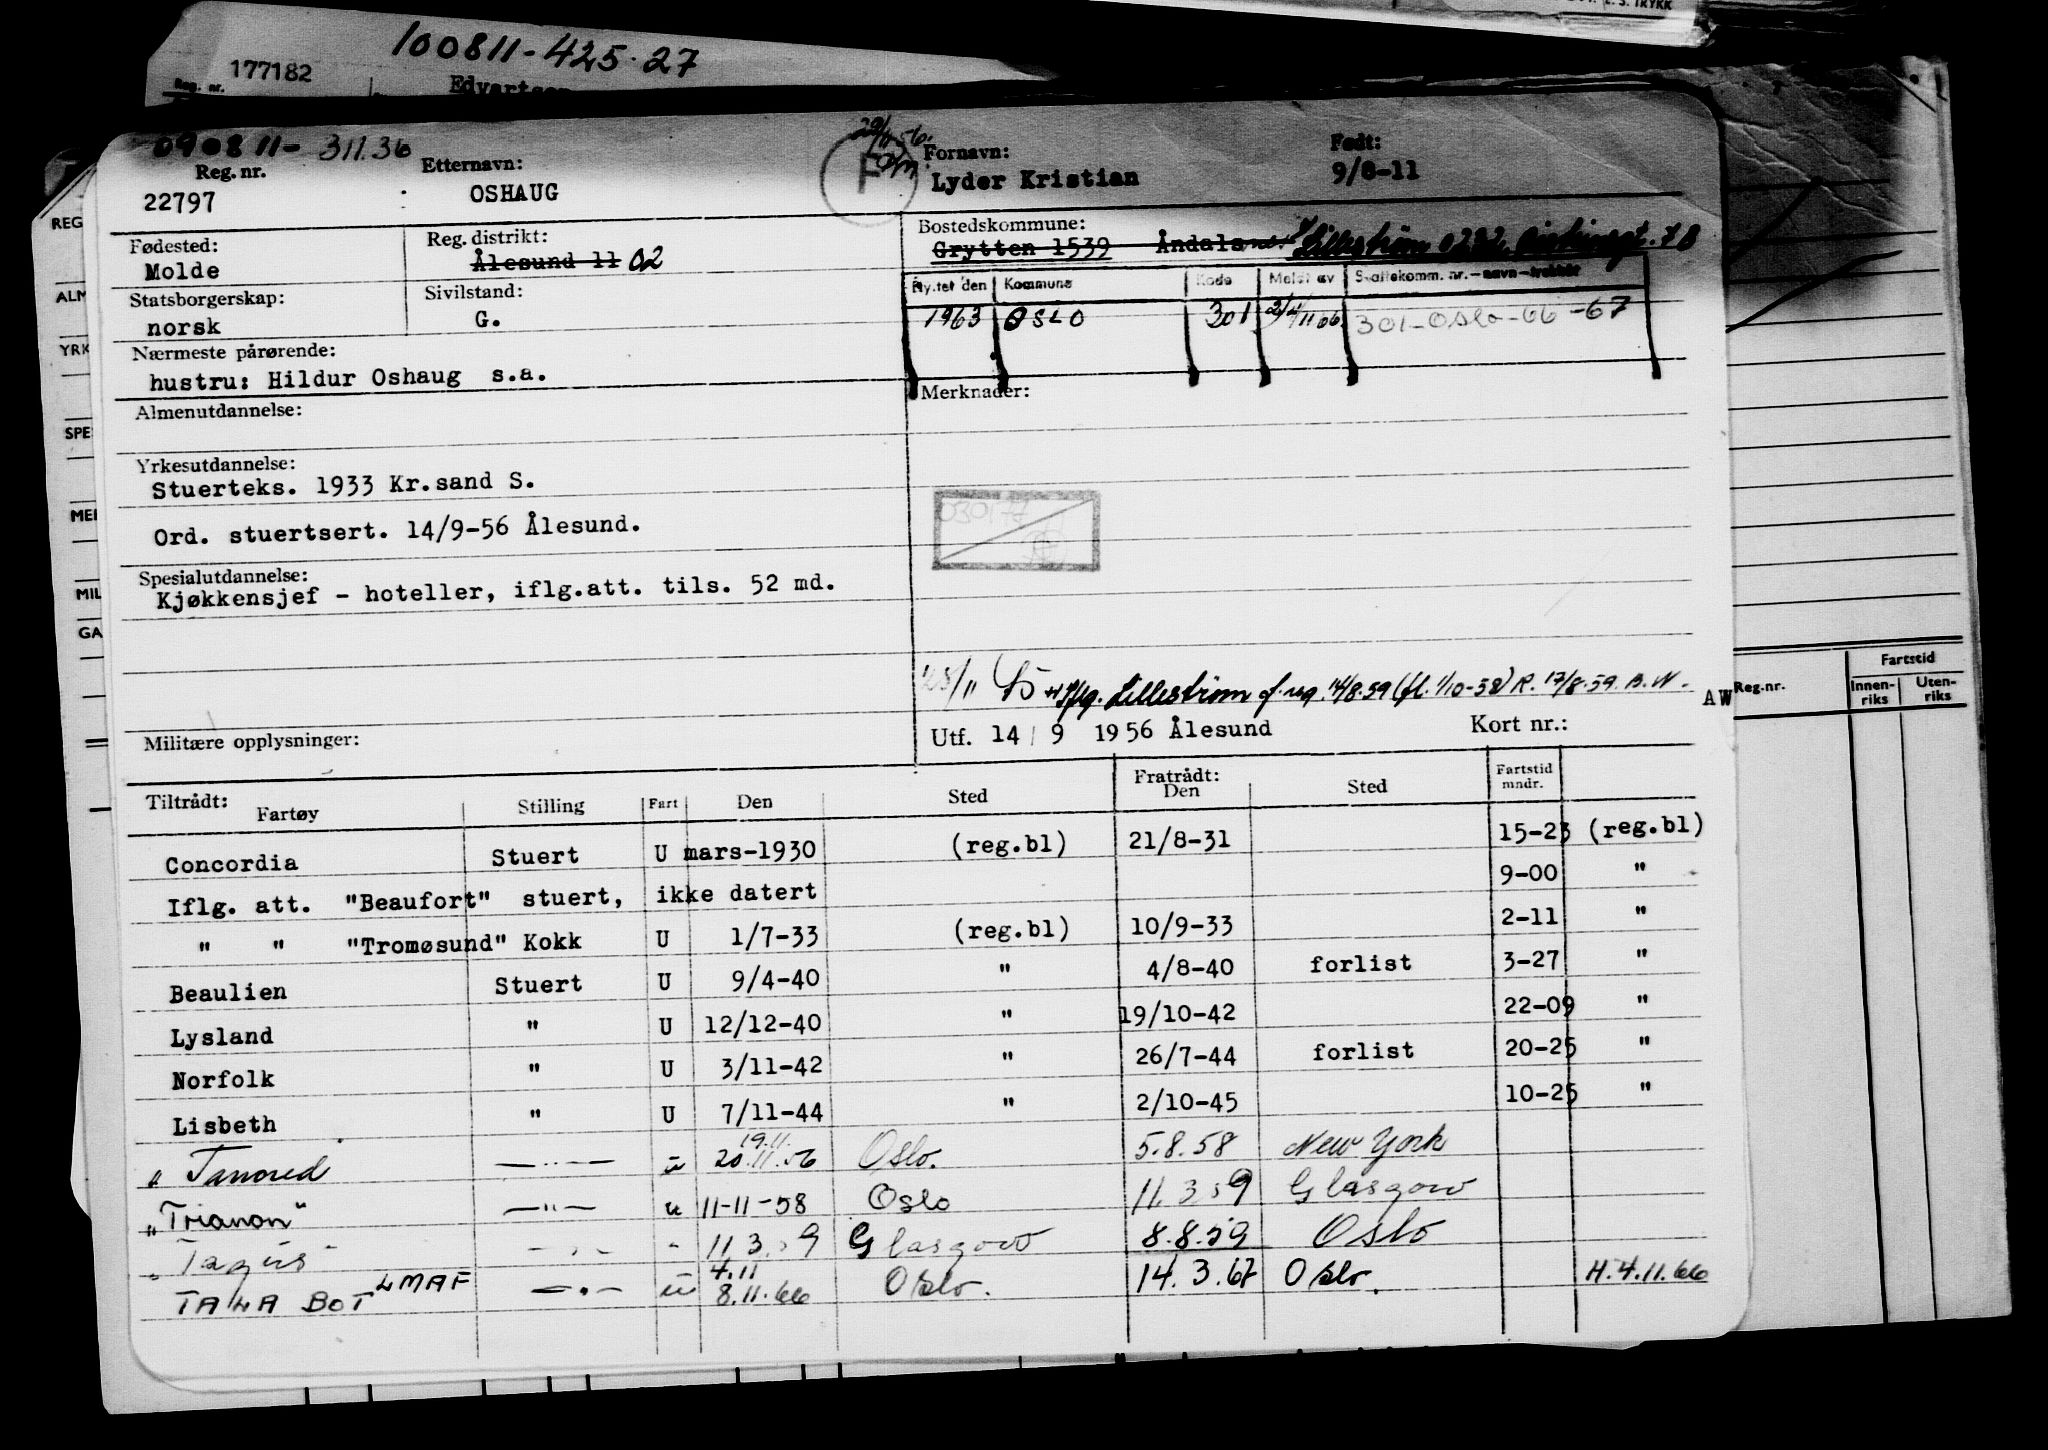 L. S. TRYKK
100811-425.27
Reg. nr. 177182
Edvartsen
090811-311.36
Reg. nr. Etternavn: Fornavn: Født:
22797 OSHAUG F Lyder Kristian 9/8-11
Fødested: Reg. distrikt: Bostedskommune:
Molde Ålesund 11 02 Grytten 1539 Åndalsnes Lillestrøm 0232
Statsborgerskap: Sivilstand: Flyttet den Kommune Kode Meldt av Skattekomm. nr. - navn - trekkår
norsk G. 1963 OSLO 301 301-Oslo-66-67
Nærmeste pårørende:
hustru: Hildur Oshaug s.a.
Almenutdannelse: Merknader:
Yrkesutdannelse:
Stuerteks. 1933 Kr.sand S.
Ord. stuertsert. 14/9-56 Ålesund.
030177
Spesialutdannelse:
Kjøkkensjef - hoteller, iflg.att. tils. 52 md.
Lillestrøm f. reg. 14/8.59 (fl. 1/10-58) R. 17/8.59. B.W.
Militære opplysninger: Utf. 14/9 1956 Ålesund Kort nr.: AW
Tiltrådt: Fratrådt:
Fartøy Stilling Fart Den Sted Den Sted Fartstid mndr.
Concordia Stuert U mars-1930 (reg.bl) 21/8-31 15-23 (reg.bl)
Iflg. att. "Beaufort" stuert, ikke datert 9-00 "
" " "Tromøsund" Kokk U 1/7-33 (reg.bl) 10/9-33 2-11 "
Beaulien Stuert U 9/4-40 " 4/8-40 forlist 3-27 "
Lysland " U 12/12-40 " 19/10-42 22-09 "
Norfolk " U 3/11-42 " 26/7-44 forlist 20-25 "
Lisbeth " U 7/11-44 " 2/10-45 10-25 "
19.11.
" Tancred —"— u 20.11.56 Oslo. 5.8.58 New York
"Trianon" —"— u 11-11-58 Oslo 11.3.59 Glasgow
" Tagus —"— " 11.3.59 Glasgow 8.8.59 Oslo
4.11
TALABOT LMAF —"— u 8.11.66 Oslo. 14.3.67 Oslo. H.4.11.66
REG
ALM
YRK
SPE
MER
MIL
GA
Reg.nr. Fartstid
Innenriks Utenriks